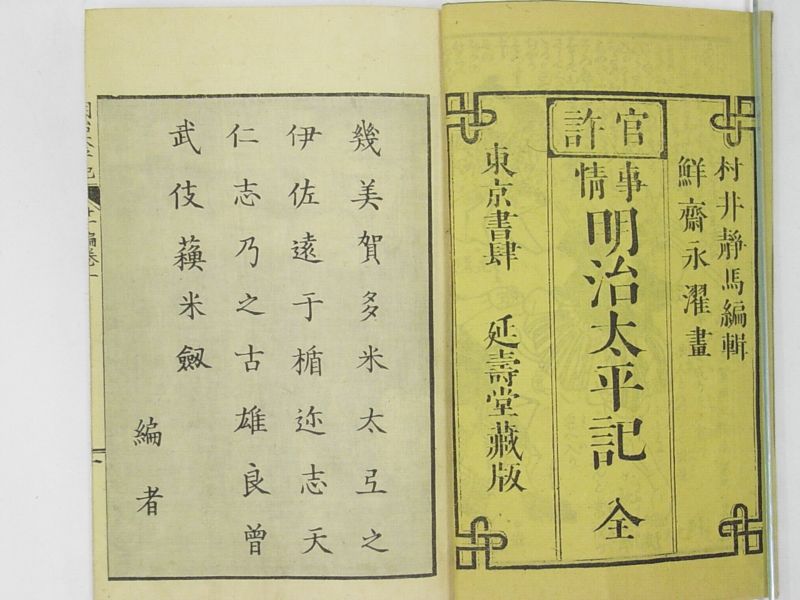 村井靜馬編輯
鮮齋永濯畫
官許
事情
明治太平記 全
東京書肆 延壽堂藏版
幾美賀多米太弖之
伊佐遠于楯迩志天
仁志乃之古雄良曽
武伎蘓米劔
編者
十一編卷一